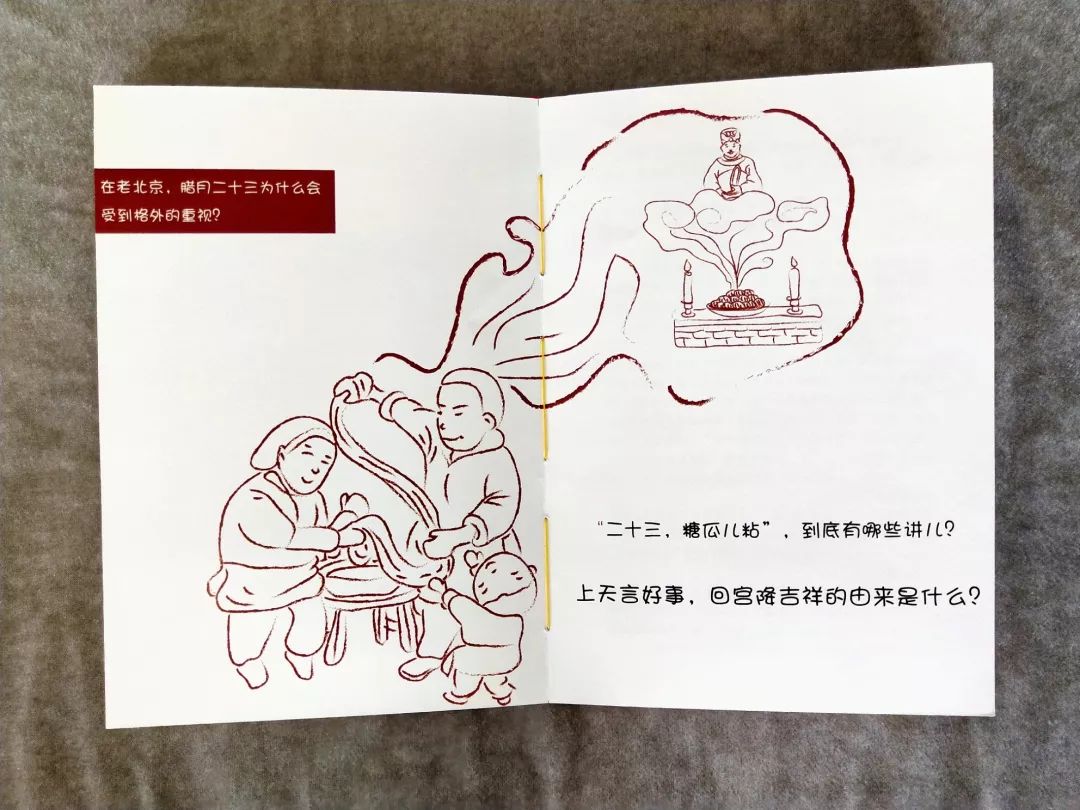 在老北京，腊月二十三为什么会
受到格外的重视？
“二十三，糖瓜儿粘”，到底有哪些讲儿？
上天言好事，回宫降吉祥的由来是什么？